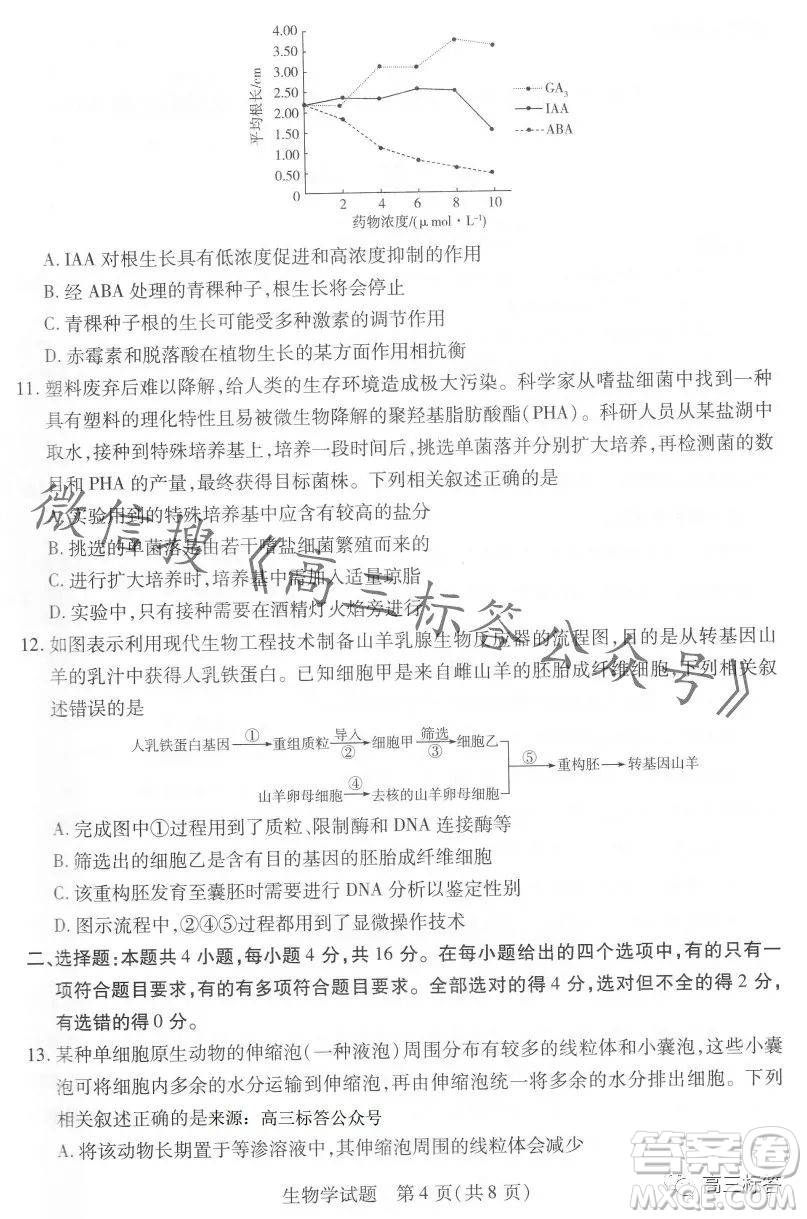 4.00
3.50
3.00
2.50
2.00
1.50
1.00
0.50
0
平均根长/cm
2 4 6 8 10
药物浓度/(μmol·L⁻¹)
GA₃
IAA
ABA
A. IAA 对根生长具有低浓度促进和高浓度抑制的作用
B. 经 ABA 处理的青稞种子,根生长将会停止
C. 青稞种子根的生长可能受多种激素的调节作用
D. 赤霉素和脱落酸在植物生长的某方面作用相抗衡
11. 塑料废弃后难以降解,给人类的生存环境造成极大污染。科学家从嗜盐细菌中找到一种
具有塑料的理化特性且易被微生物降解的聚羟基脂肪酸酯(PHA)。科研人员从某盐湖中
取水,接种到特殊培养基,培养一段时间后,挑选单菌落分别扩大培养,再检测菌的数
目和 PHA 的产量,最终获得目标菌株。下列相关叙述正确的是
A. 实验用到的特殊培养基中应含有较高的盐分
B. 挑选的单菌落是由若干嗜盐细菌繁殖而来的
C. 进行扩大培养时,培养基中需加入适量琼脂
D. 实验中,只有接种需要在酒精灯火焰旁进行
12. 如图表示利用现代生物工程技术制备山羊乳腺生物反应器的流程图,目的是从转基因山
羊的乳汁中获得人乳铁蛋白。已知细胞甲是来自雌山羊的胚胎成纤维细胞,下列相关叙
述错误的是
人乳铁蛋白基因 ① 重组质粒 导入 ② 细胞甲 筛选 ③ 细胞乙
⑤ 重构胚 转基因山羊
山羊卵母细胞 ④ 去核的山羊卵母细胞
A. 完成图中①过程用到了质粒、限制酶和 DNA 连接酶等
B. 筛选出的细胞乙是含有目的基因的胚胎成纤维细胞
C. 该重构胚发育至囊胚时需要进行 DNA 分析以鉴定性别
D. 图示流程中,②④⑤过程用到了显微操作技术
二、选择题:本题共 4 小题,每小题 4 分,共 16 分。在每小题给出的四个选项中,有的只有一
项符合题目要求,有的有多项符合题目要求。全部选对的得 4 分,选对但不全的得 2 分,
有选错的得 0 分。
13. 某种单细胞原生动物的伸缩泡(一种液泡)周围分布有较多的线粒体和小囊泡,这些小囊
泡可将细胞内多余的水分运输到伸缩泡,再由伸缩泡统一将多余的水分排出细胞。下列
相关叙述正确的是来源：高三标答公众号
A. 将该动物长期置于等渗溶液中,其伸缩泡周围的线粒体会减少
生物学试题 第 4 页(共 8 页)
微信搜《高三标答公众号》
答案卷
高三标答
MXQE.COM